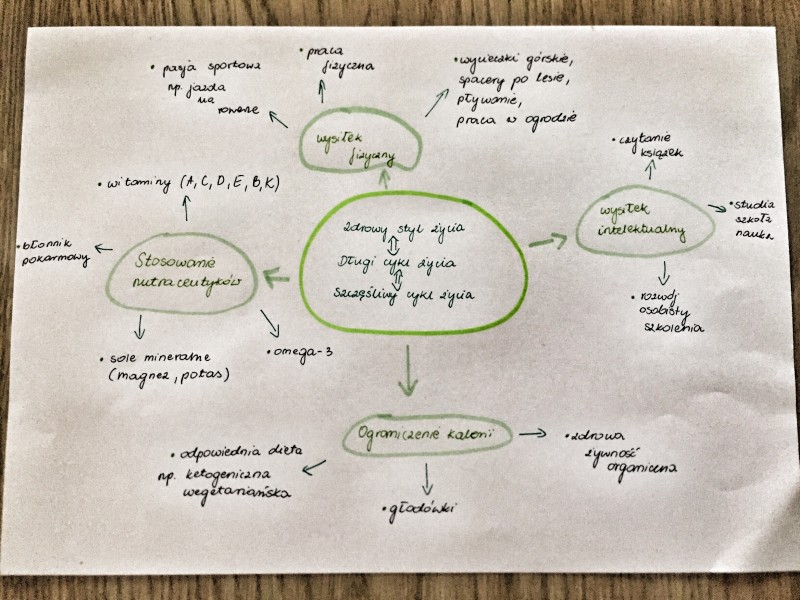 • pasja sportowa
np. jazda
na
rowerze
• praca
fizyczna
• wycieczki górskie,
spacery po lesie,
pływanie,
praca w ogrodzie
wysiłek
fizyczny
• czytanie
książek
• witaminy (A, C, D, E, B, K)
wysiłek
intelektualny
• studia
szkoła
nauka
• rozwój
osobisty
szkolenia
zdrowy styl życia
Długi cykl życia
Szczęśliwy cykl życia
• błonnik
pokarmowy
Stosowanie
nutraceutyków
• sole mineralne
(magnez, potas)
• omega-3
Ograniczenie kalorii
• odpowiednia dieta
np. ketogeniczna
wegetariańska
• głodówki
• zdrowa
żywność
organiczna